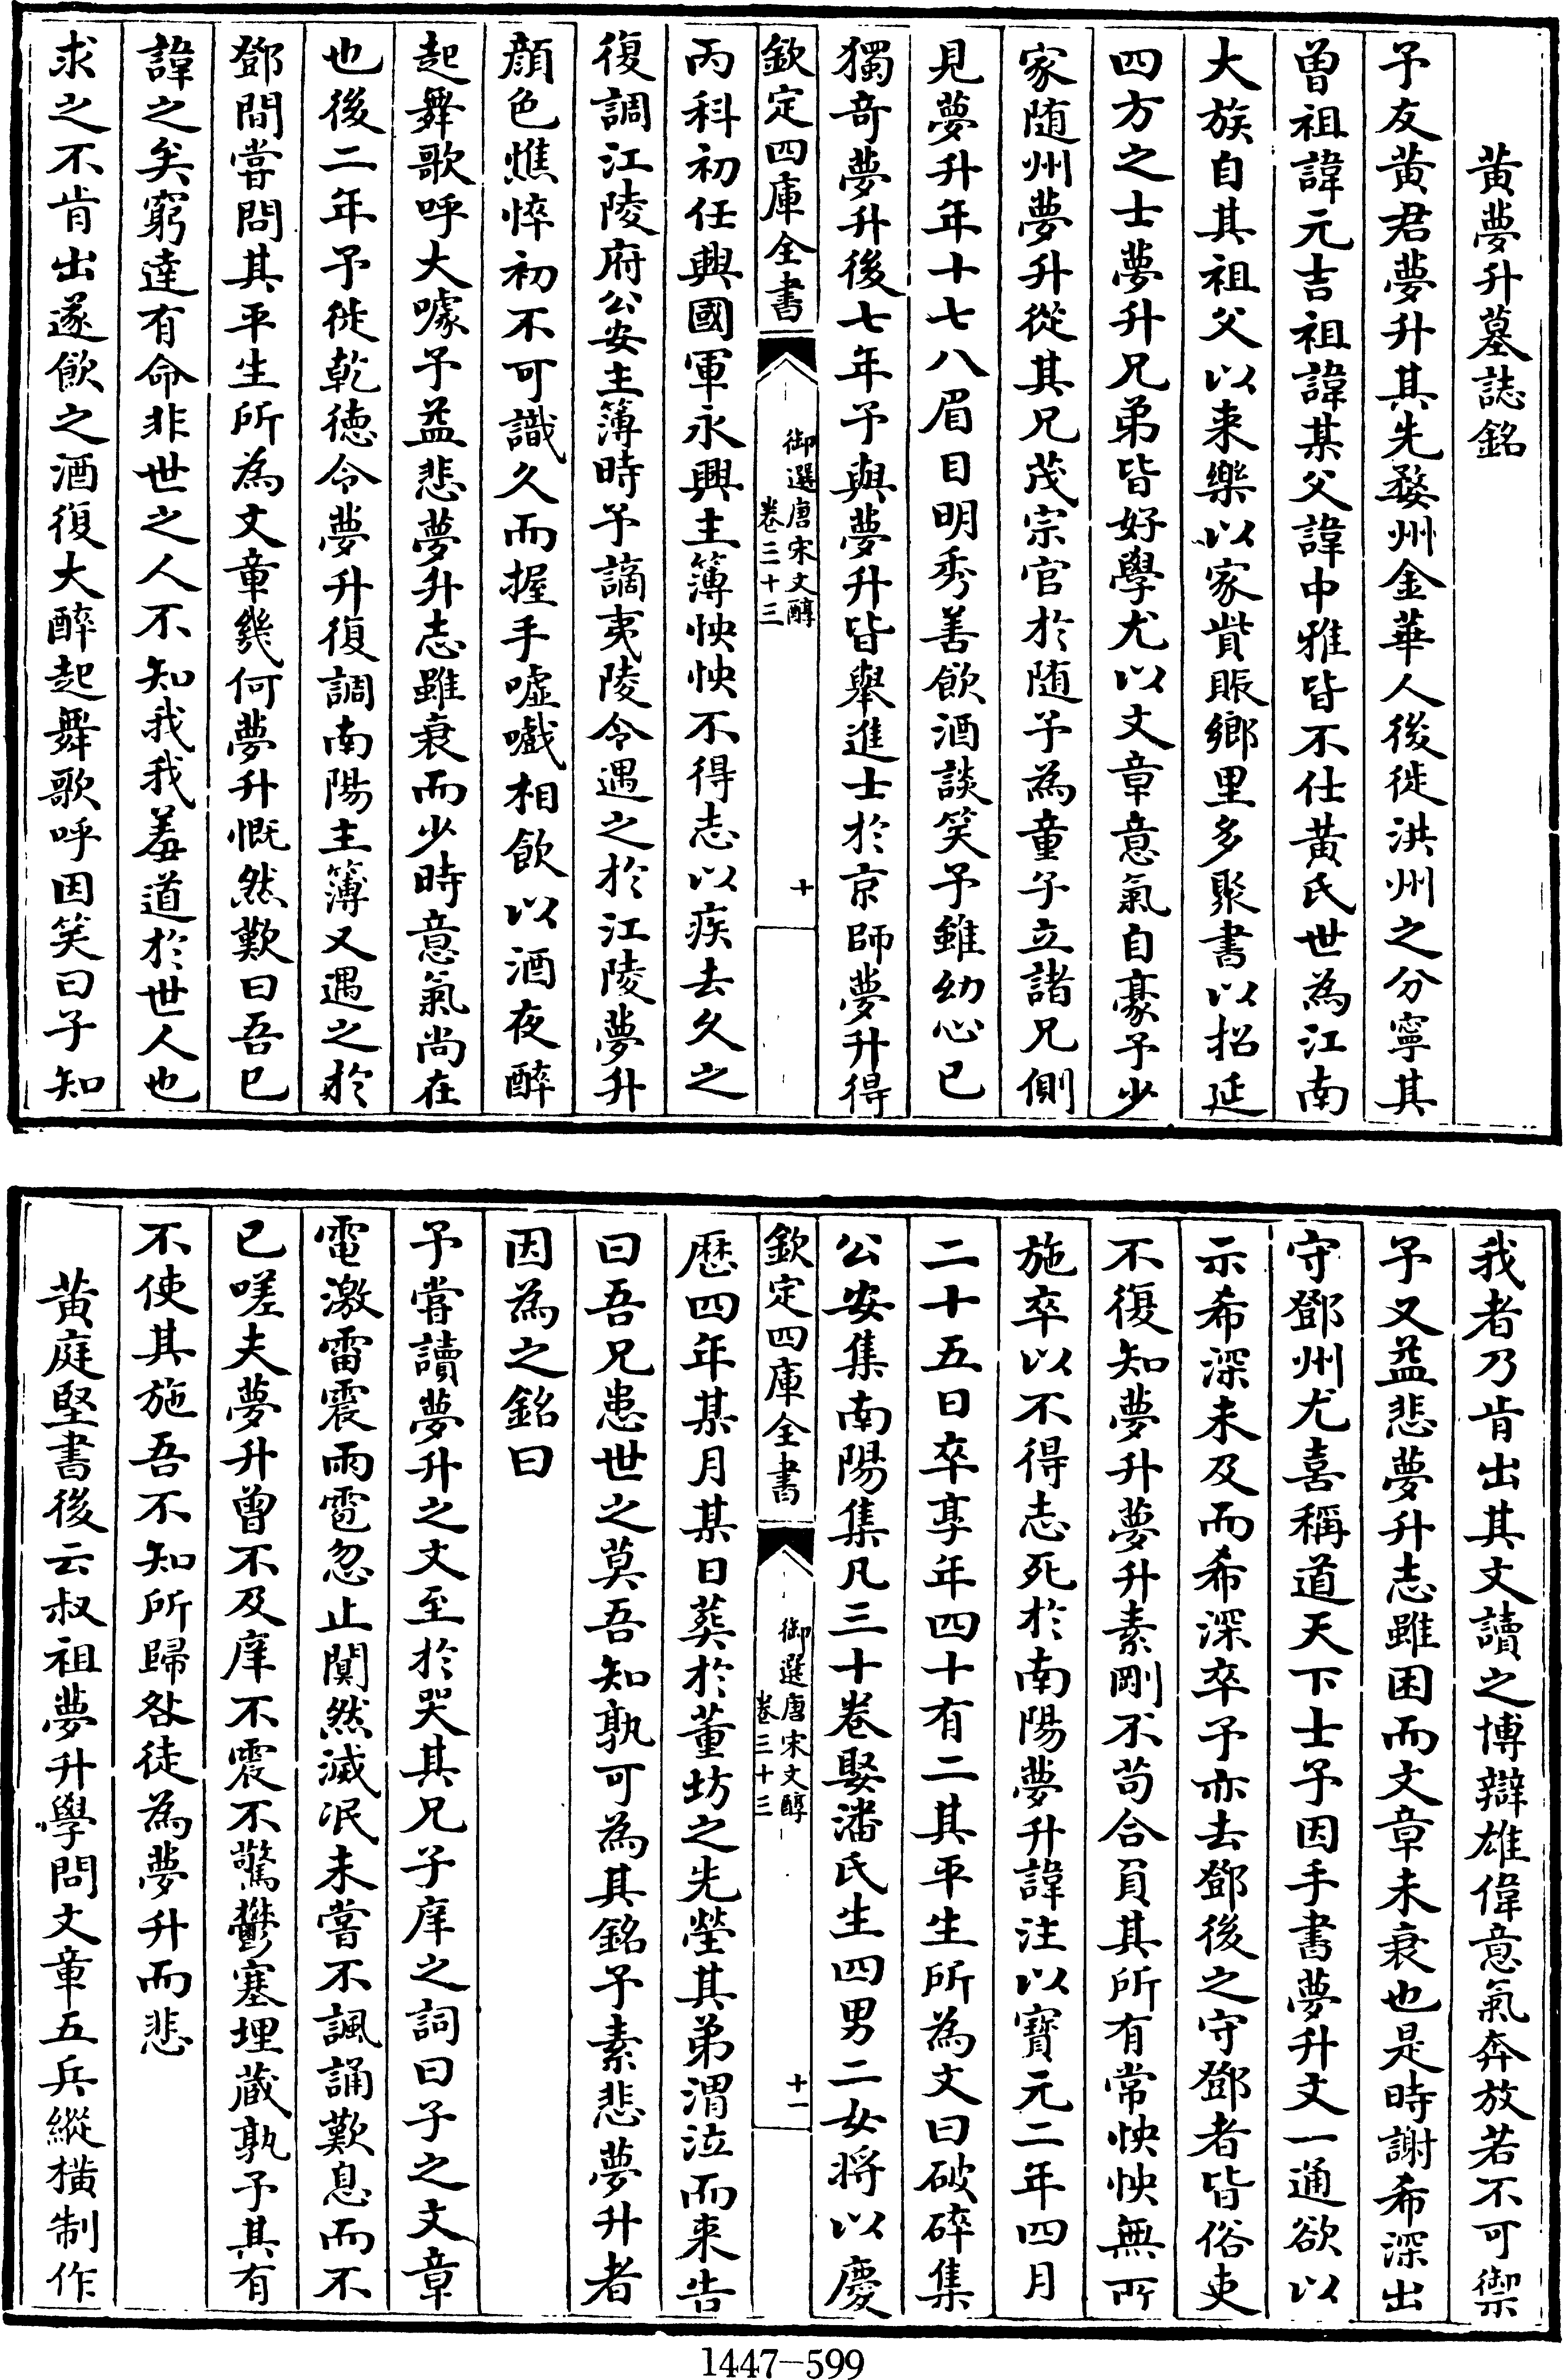 黃夢升墓誌銘
予友黃君夢升其先婺州金華人後徙洪州之分寧其
曽祖諱元吉祖諱某父諱中雅皆不仕黃氏世為江南
大族自其祖父以来樂以家貲賑鄉里多聚書以招延
四方之士夢升兄弟皆好學尤以文章意氣自豪予少
家随州夢升從其兄茂宗官於随予為童子立諸兄側
見夢升年十七八眉目明秀善飲酒談笑予雖幼心已
獨竒夢升後七年予與夢升皆舉進士於京師夢升得
欽定四庫全書
御選唐宋文醇
卷三十三
十
丙科初任興國軍永興主簿怏怏不得志以疾去久之
復調江陵府公安主簿時予謫夷陵令遇之於江陵夢升
顔色憔悴初不可識久而握手噓嚱相飲以酒夜醉
起舞歌呼大噱予益悲夢升志雖衰而少時意氣尚在
也後二年予徙乾徳令夢升復調南陽主簿又遇之於
鄧間嘗問其平生所為文章幾何夢升慨然歎曰吾已
諱之矣窮達有命非世之人不知我我羞道於世人也
求之不肯出遂飲之酒復大醉起舞歌呼因笑曰子知
我者乃肯出其文讀之博辯雄偉意氣奔放若不可禦
予又益悲夢升志雖困而文章未衰也是時謝希深出
守鄧州尤喜稱道天下士予因手書夢升文一通欲以
示希深未及而希深卒予亦去鄧後之守鄧者皆俗吏
不復知夢升夢升素剛不苟合負其所有常怏怏無所
施卒以不得志死於南陽夢升諱注以寶元二年四月
二十五日卒享年四十有二其平生所為文曰破碎集
公安集南陽集凡三十卷娶潘氏生四男二女將以慶
欽定四庫全書
御選唐宋文醇
卷三十三
十一
厯四年某月某日葬於董坊之先塋其弟渭泣而来告
曰吾兄患世之莫吾知孰可為其銘予素悲夢升者
因為之銘曰
予嘗讀夢升之文至於哭其兄子庠之詞曰子之文章
電激雷震雨雹忽止闃然滅泯未嘗不諷誦歎息而不
已嗟夫夢升曽不及庠不震不驚鬱塞埋藏孰予其有
不使其施吾不知所歸咎徒為夢升而悲
黃庭堅書後云叔祖夢升學問文章五兵縱橫制作
1447-599